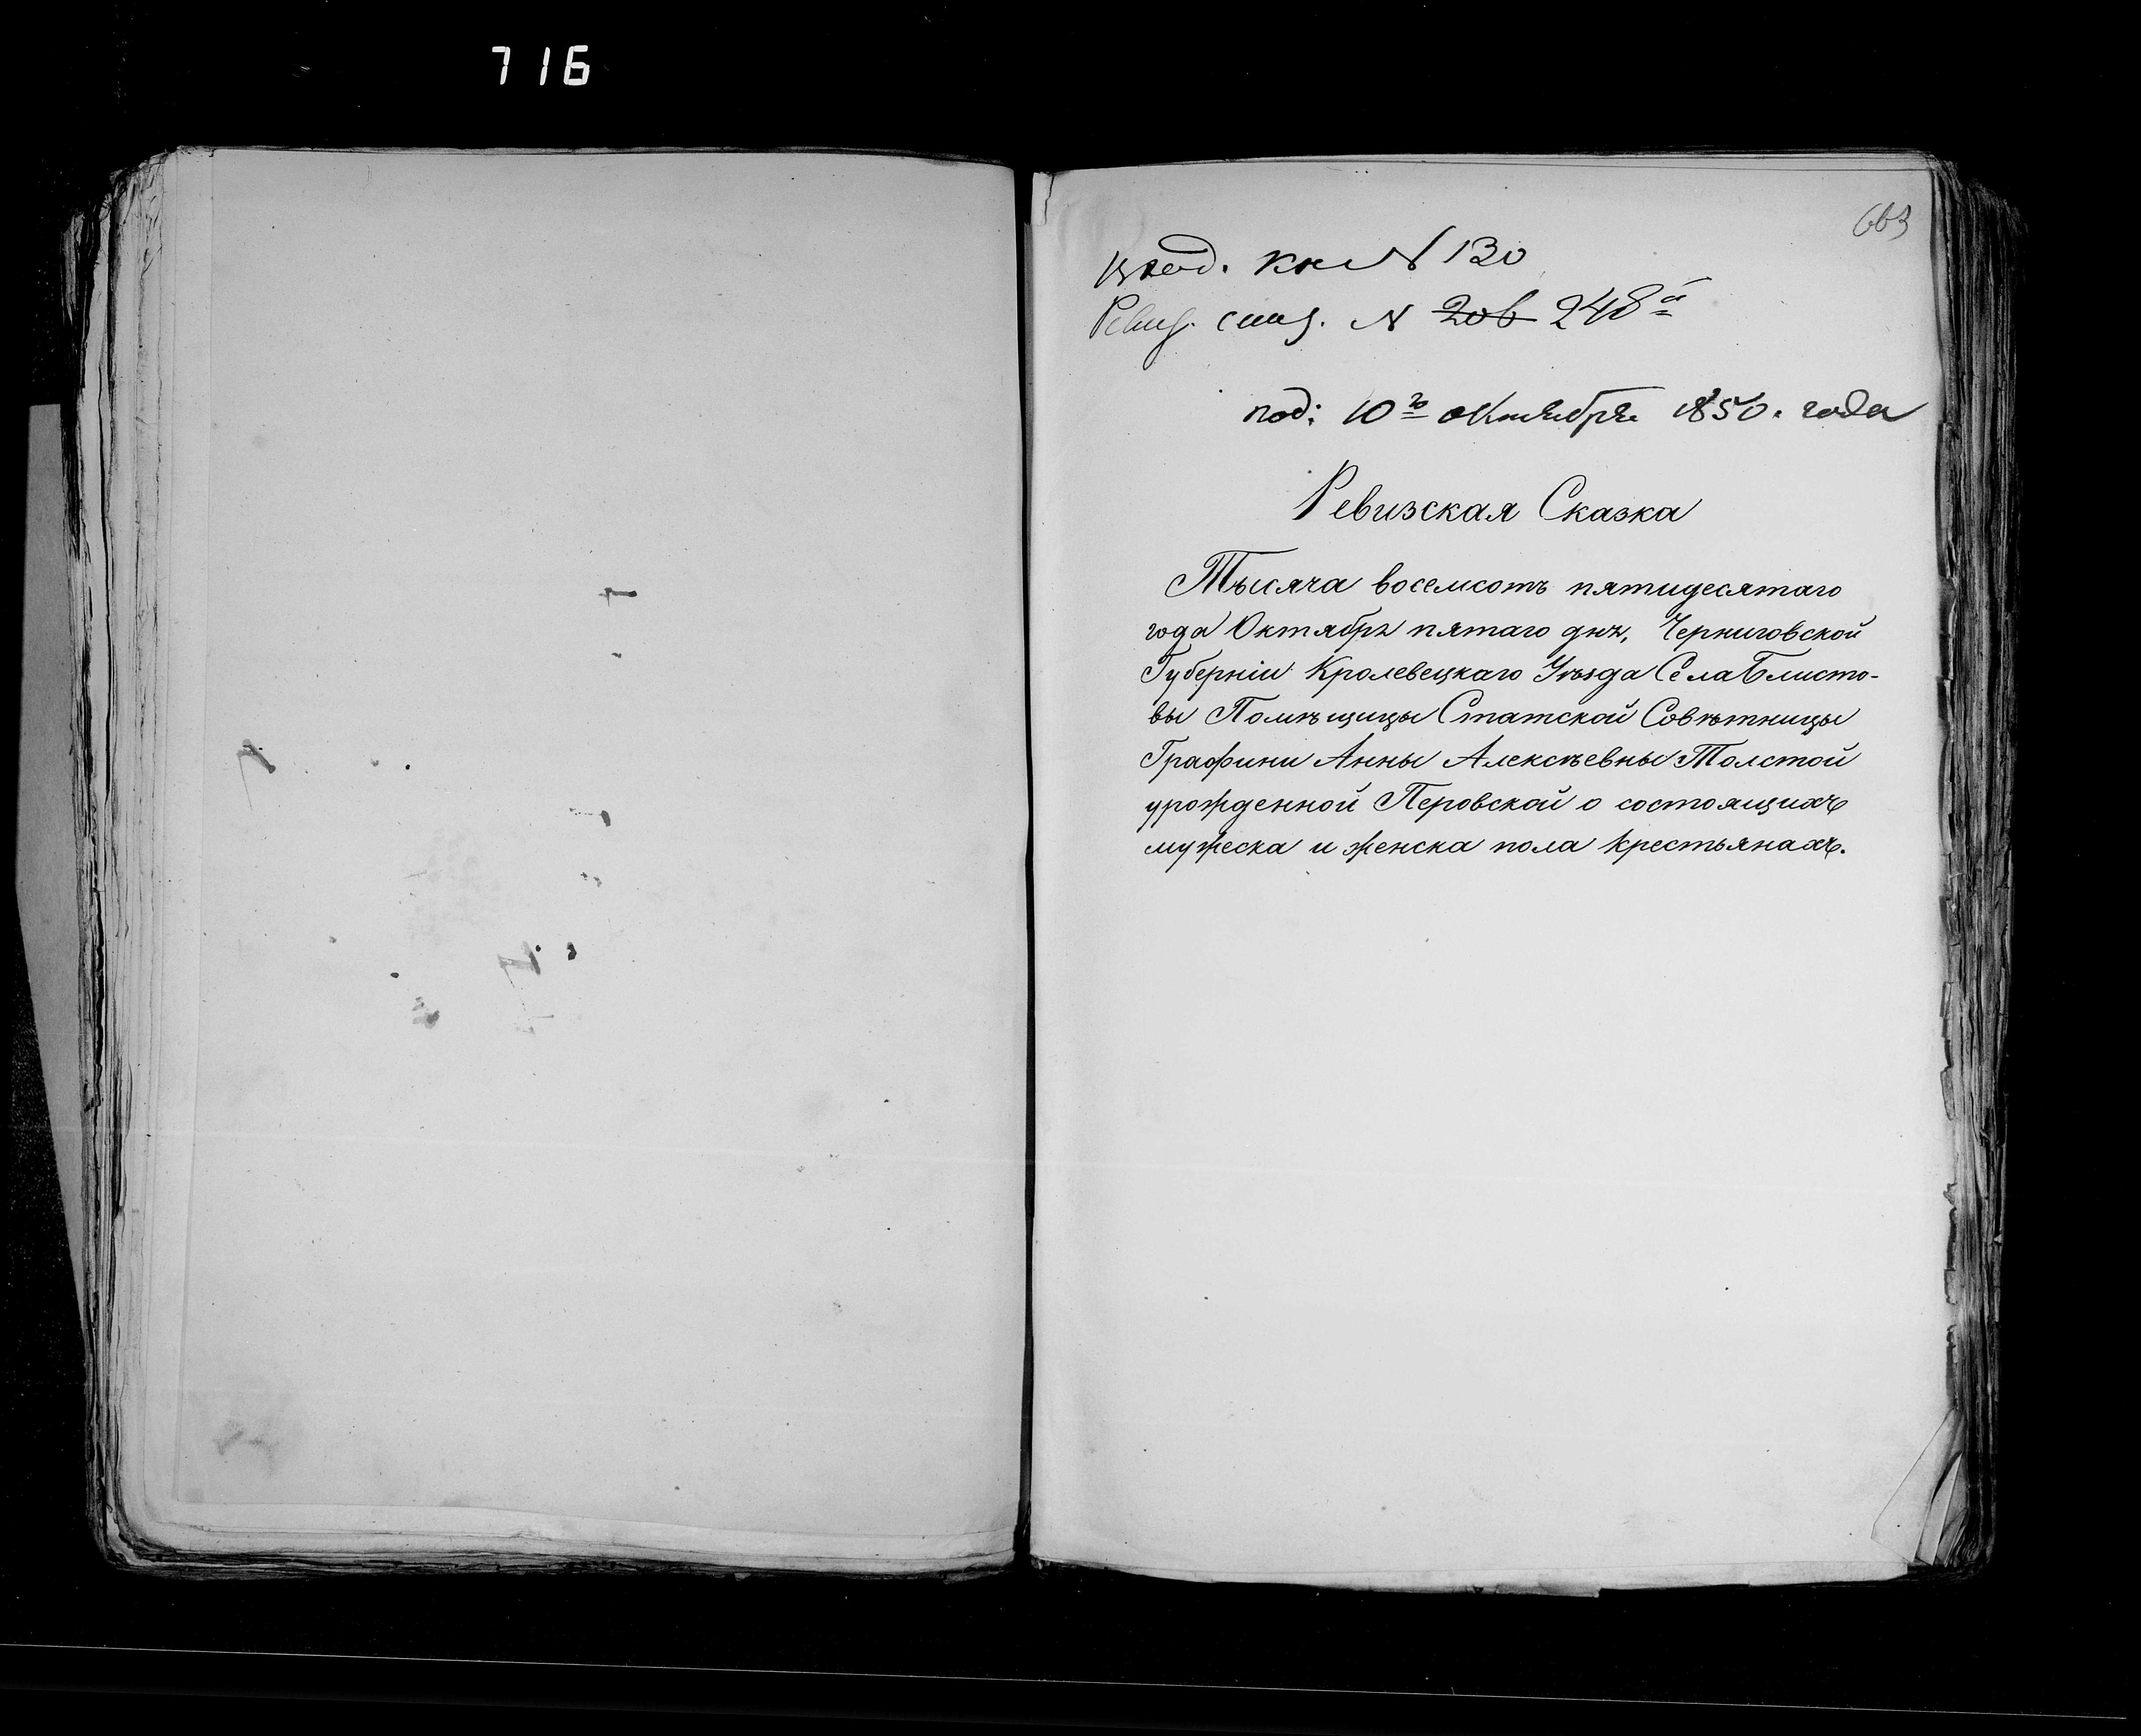 716
663
вход. кн № 130
Ревиз. спис. № 206 248й
под: 10го октября 1850. года
Ревизская Сказка
Тысяча восемсотъ пятидесятаго
года Октября пятаго дня, Черниговской
Губерніи Кролевецкаго Уѣзда Села Блисто-
вы Помѣщицы Статской Совѣтницы
Графини Анны Алексѣевны Толстой
урожденной Перовской о состоящихъ
мужеска и женска пола крестьянахъ.